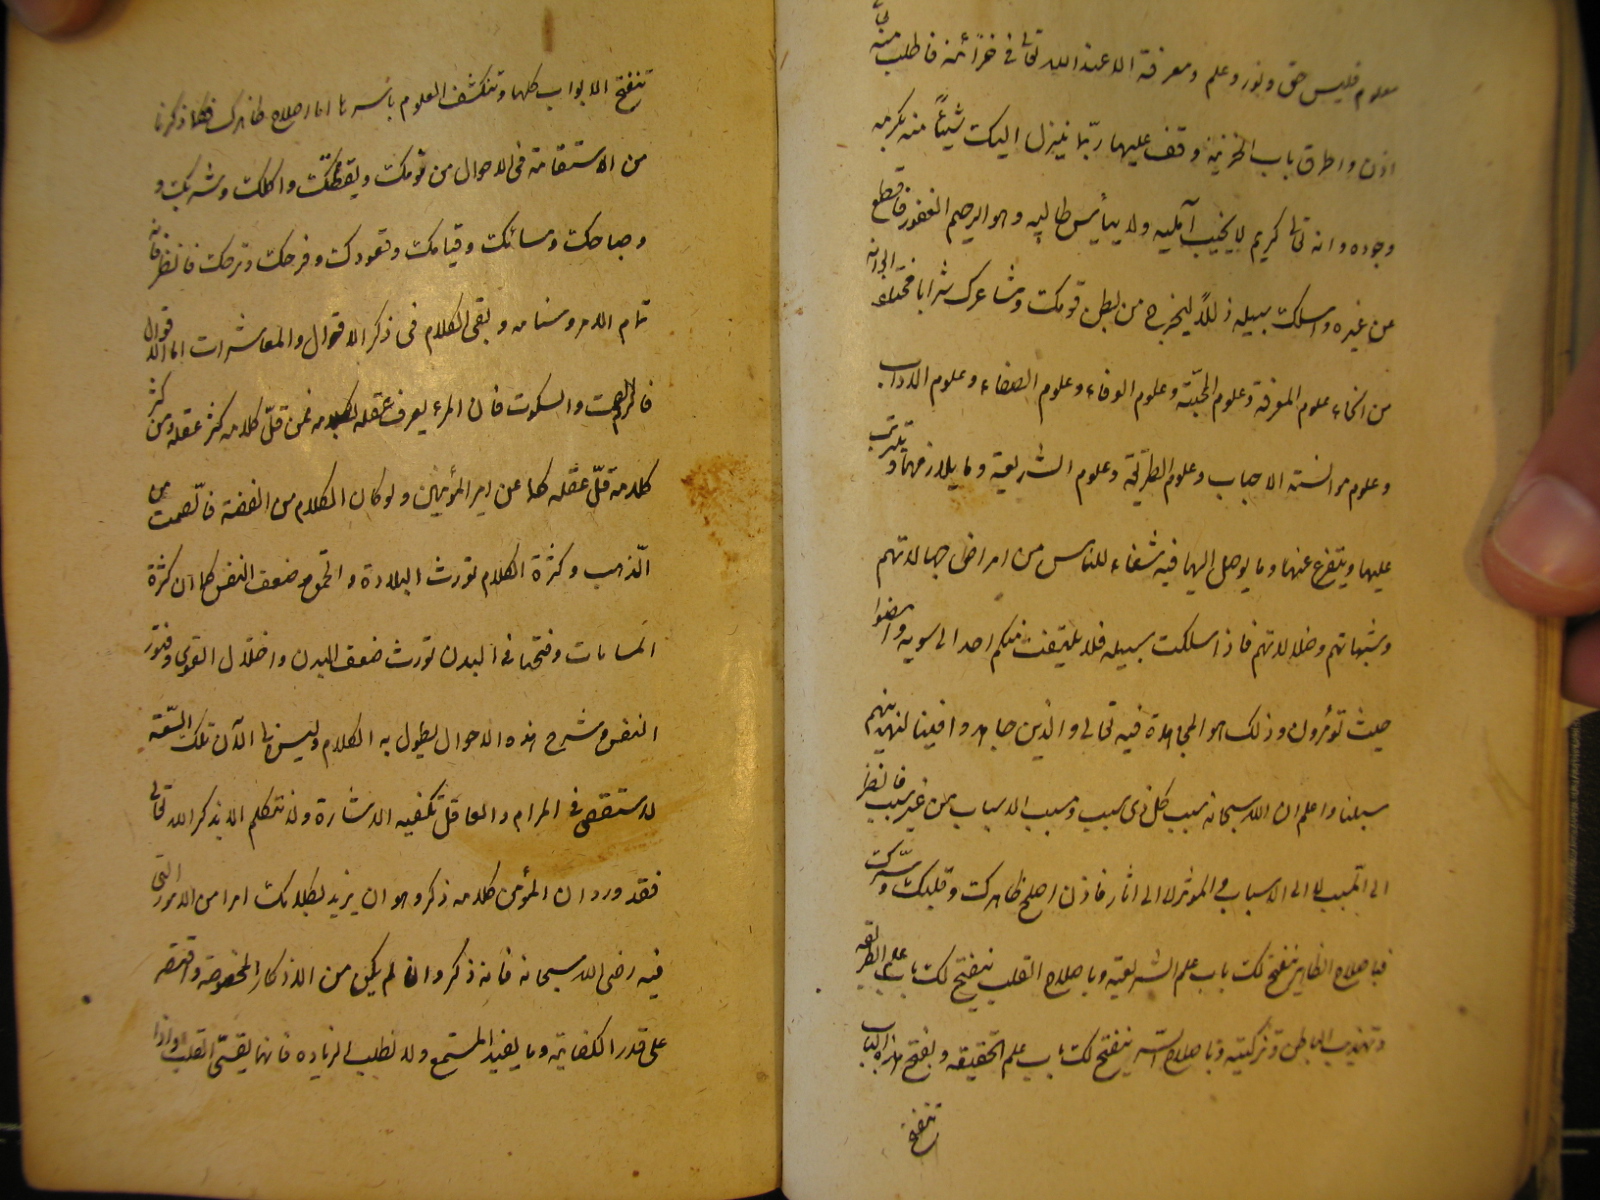 معلوم فليس حق ونور وعلم ومعرفة الا عند الله تعالى في خزائنه فاطلب منه
اذن واطرق باب الخزينة وقف عليها ربّما ينزل اليك شيئاً منه بكرمه
وجوده وانه تعالى كريم لا يخيب آمليه ولا ييأيس طالبيه وهو الرحيم الغفور فاقطع
عن غيره واسلك سبيله ذللاً ليخرج من بطن قومك ومشاعرك شرابا مختلفا الوانه
من انحاء علوم المعرفة وعلوم المحبّة وعلوم الوفاء وعلوم الصفاء وعلوم الاداب
وعلوم موانسته الاحباب وعلوم الطريقة وعلوم الشريعة وما يلازمها وتيرتب
عليها ويتفرع عنها وما يوصل اليها فيه شفاء للناس من امراض جهالاتهم
وشبهاتهم وضلالاتهم فاذا سلكت سبيله فلا يلتفت منكم احد الى سويه وامضوا
حيث تؤمرون وذلك هو المجاهدة فيه تعالى والذين جاهدوا فينا لنهدينهم
سبلنا واعلم ان الله سبحانه سبب كل ذى سبب ومسبب الاسباب من غير سبب فانظر
الى المسبب لا الى الاسباب والموثر لا الى اثار فاذن اصلح ظاهرك وقلبك وسرّك
فباصلاح الظاهر ينفتح لك باب علم الشريعة وباصلاح القلب ينفتح لك باب علم الطريقه
وتهذيب الباطن وتزكيته وباصلاح السّر ينفتح لك باب علم الحقيقه وبفتح هذه الباب
تنفتح
تنفتح الابواب كلها وتنكشف العلوم باسرها اما اصلاح ظاهرك فكما ذكرنا
من الاستقامة فى الاحوال من نومك ويقظتك واكلك وشربك و
وصباحك ومسائك وقيامك وقعودك وفرحك وترحك فانظر فانه
تمام الامر وسنامه وبقى الكلام فى ذكر الاقوال والمعاشرات اما الاقوال
فالزم الصمت والسكوت فان المرء يعرف عقله بكلامه فمن قلّ كلامه كثر عقله ومن كثر
كلامه قلّ عقله كما عن امير المؤمنين ولو كان الكلام من الفضة فالصمت من
الذهب وكثرة الكلام تورث البلادة والحمق وضعف النفس كما ان كثرة
المسامات وفتحها فى البدن تورث ضعف البدن واختلال القوى وفتور
النفس وشرح هذه الاحوال يطول به الكلام وليس لى الآن تلك السّعة
لاستقصى فى المرام والعاقل تكفيه الاشارة ولا تتكلم الا بذكر الله تعالى
فقد ورد ان المؤمن كلامه ذكر وهو ان يريد بكلامك امرا من الامور التى
فيه رضى الله سبحانه فانه ذكر وان لم يكن من الاذكار المخصوصة واقتصر
على قدر الكفاية وما يفيد المستمع ولا تطلب الزياده فانها يقسّى القلب واذا